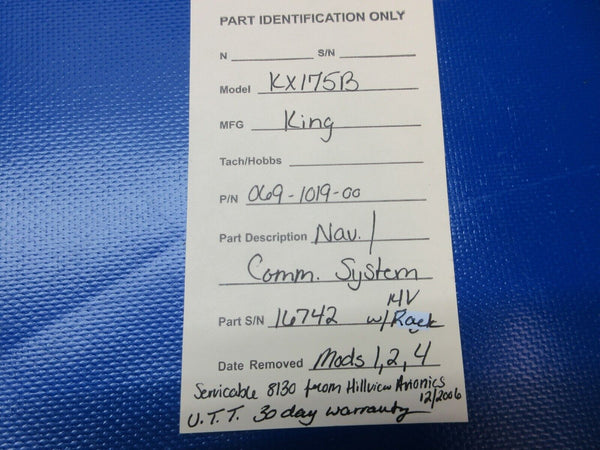 PART IDENTIFICATION ONLY
N S/N
Model KX175B
MFG King
Tach/Hobbs
P/N 069-1019-00
Part Description Nav. /
Comm. System
14V
Part S/N 16742 w/ Rack
Date Removed Mods 1, 2, 4
Servicable 8130 from Hillview Avionics
12/2006
U.T.T. 30 day warranty